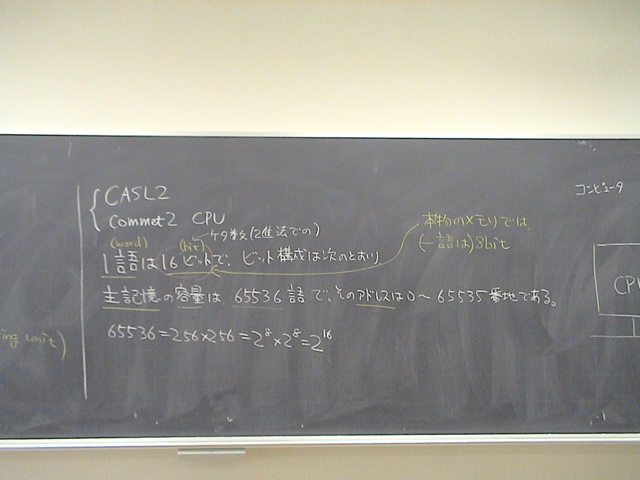 CASL2
Commet2 CPU
ケタ数(2進法での)
(word) (bit)
1語は16ビットで、ビット構成は次のとおり
本物のメモリでは、
(一語は)8bit
主記憶の容量は 65536語で、そのアドレスは0〜65535番地である。
65536=256×256=2⁸×2⁸=2¹⁶
ing unit)
コンピュータ
CPU